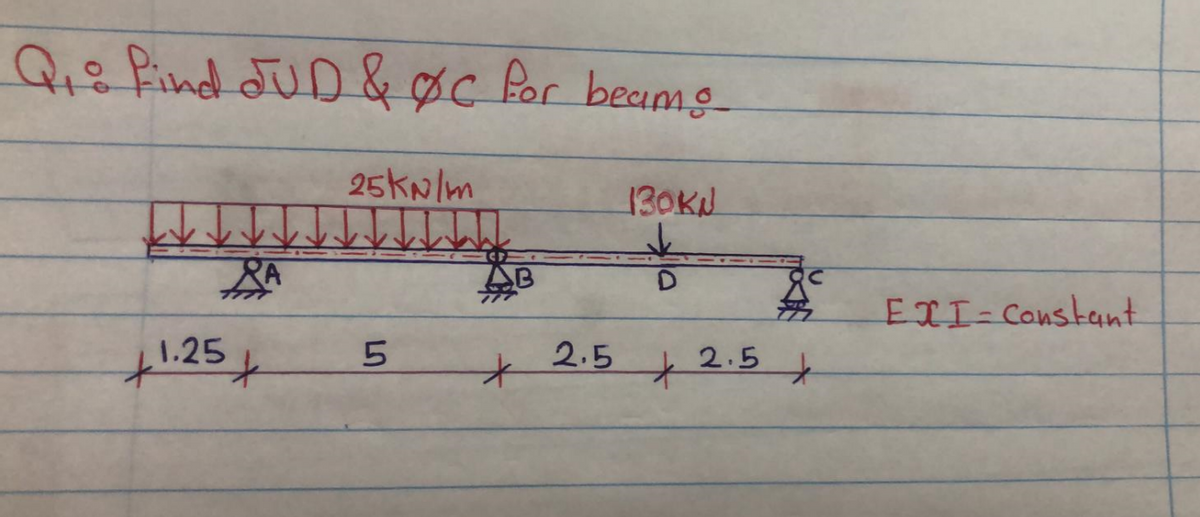 Q1: find δVD & øC for beam:-
25KN/m
130KN
A
B
D
C
EXI = Constant
1.25 5 2.5 2.5